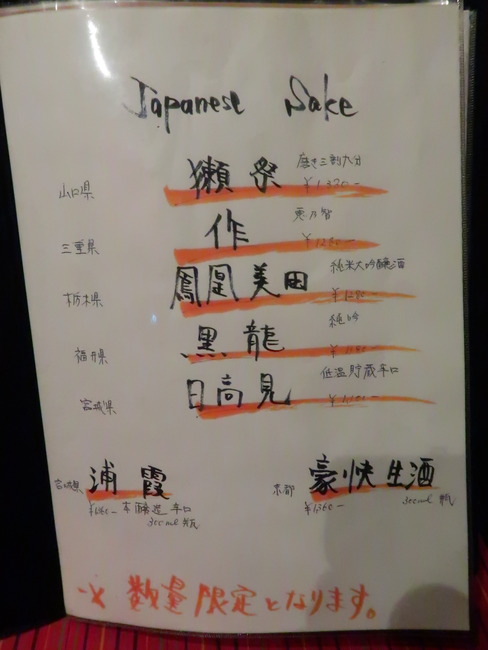 Japanese Sake
山口県 獺祭 磨き三割九分
¥1,320-
三重県 作
栃木県 鳳凰美田 純米大吟醸酒
福井県 黒龍 純吟
宮城県 日高見 低温貯蔵辛口
¥1,100-
宮城県 浦霞
本醸造 辛口
300ml 瓶
京都 豪快生酒
300ml 瓶
¥1,360-
※数量限定となります。